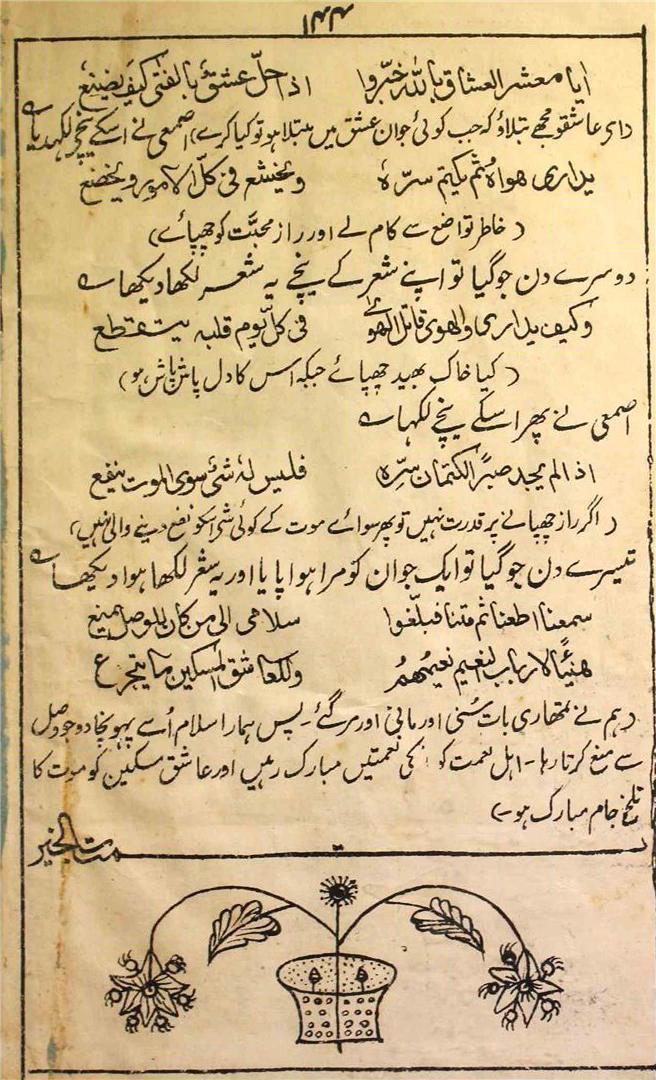 ۱۴۴
ایا معشر العشاق باللہ خبّروا اذا حلّ عشقٌ بالفتی کیف یصنع
(اے عاشقو مجھے بتلاؤ کہ جب کوئی جوان عشق میں مبتلا ہو تو کیا کرے) اصمعی نے اسکے نیچے لکھدیا ے
یداری ھواہ ثم یکتم سرّہ و یخشع فی کلّ الامور و یخضع
(خاطر تواضع سے کام لے اور راز محبّت کو چھپائے)
دوسرے دن جو گیا تو اپنے شعر کے نیچے یہ شعر لکھا دیکھا ے
وکیف یداری والھوی قاتل الھوے فی کلّ یوم قلبہ یتقطع
(کیا خاک بھید چھپائے جبکہ اس کا دل پاش پاش ہو)
اصمعی نے پھر اسکے نیچے لکھا ے
اذا لم یجد صبرًا لکتمان سرّہ فلیس لہٗ شئ سوی الموت ینفع
(اگر راز چھپانے پر قدرت نہیں تو پھر سوائے موت کے کوئی شی اسکو نفع دینے والی نہیں)
تیسرے دن جو گیا تو ایک جوان کو مرا ہوا پایا اور یہ شعر لکھا ہوا دیکھا ے
سمعنا اطعنا ثم متنا فبلّغوا سلامی الی من کان للوصل یمنع
ھنیئًا لارباب النعیم نعیمھم وللعاشق المسکین ما یتجرع
(ہم نے تمھاری بات سُنی اور مانی اور مر گئے۔ پس ہمارا سلام اُسے پہونچا دو جو وصل
سے منع کرتا رہا۔ اہل نعمت کو انکی نعمتیں مبارک رہیں اور عاشق مسکین کو موت کا
تلخ جام مبارک ہو۔)
تمت بالخیر